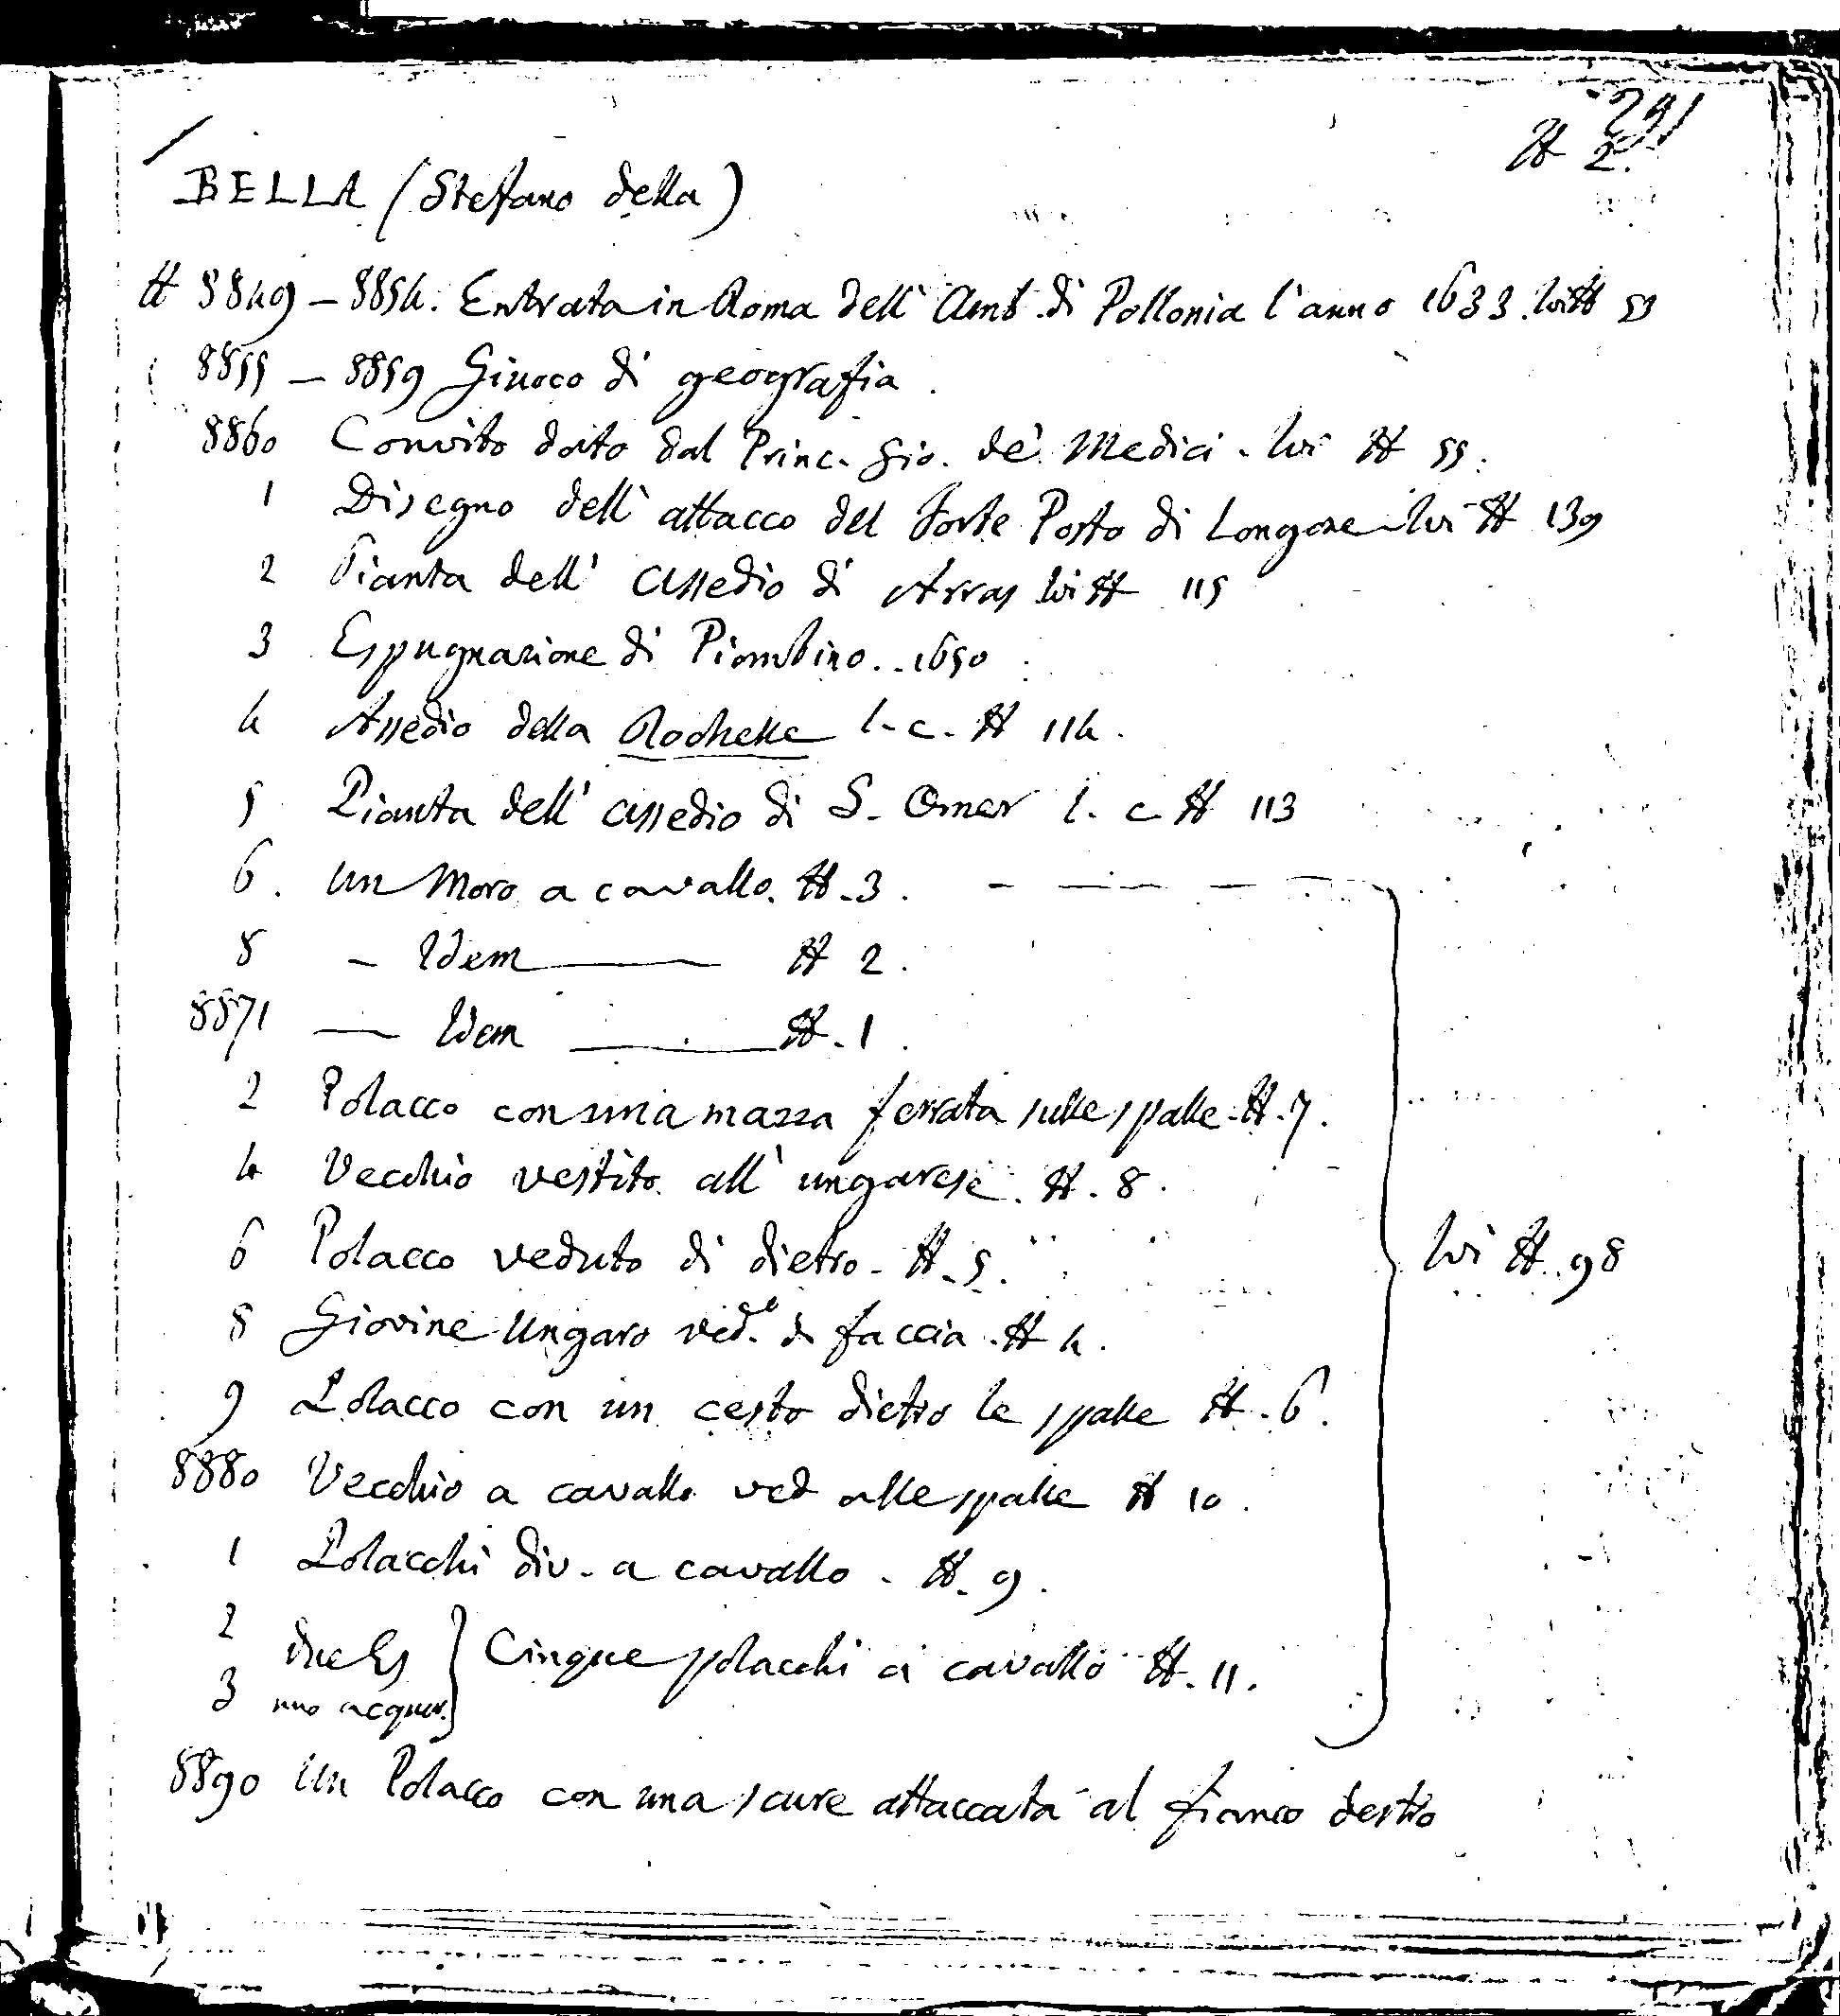 291
# 2.
BELLA (Stefano della)
# 8849 – 8854. Entrata in Roma dell' Amb. di Pollonia l'anno 1633. ivi # 53
8855 – 8859 Giuoco di geografia.
8860 Convito dato dal Princ. Gio. de' Medici - ivi # 55.
1 Disegno dell' attacco del Forte Porto di Longone - ivi # 139
2 Pianta dell' assedio di Arras ivi # 115
3 Espugnazione di Piombino. . 1650
4 Assedio della Rochelle l. c. # 114.
5 Pianta dell' assedio di S. Omer l. c # 113
6. Un Moro a cavallo. #. 3.
8 – Idem — # 2.
8871 — Idem — #. 1.
2 Polacco con una mazza ferrata sulle spalle. #. 7.
4 Vecchio vestito all' ungarese. #. 8.
6 Polacco veduto di dietro - #. 5.
8 Giovine Ungaro ved.º di faccia. # 4.
ivi #. 98
9 Polacco con un cesto dietro le spalle #. 6.
8880 Vecchio a cavallo ved alle spalle # 10.
1 Polacchi div. a cavallo. #. 9.
2 due Es
3 uno acquer. } Cinque polacchi a cavallo #. 11.
8890 Un Polacco con una scure attaccata al fianco destro